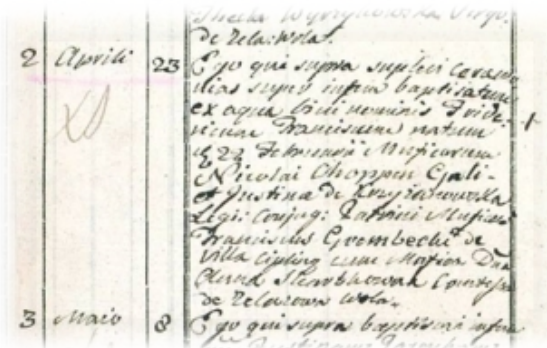 de Zela: Wola.
2 Aprili 23 Ego qui supra suplevi ceremo
nias super infan baptisatum
ex aqua bini nominis Fride
ricum Franciscum natum
22 Februarii Musicorum
Nicolai Choppen Gali-
et Justina de Krzyżanowska
Legi: Conjug: Patrini
Franciscus Grembecki de
Villa Cipliny cum Da
Anna Skarbkowna Comtessa
de Zelazowa Wola.
3 Maio 8 Ego qui supra baptisavi infan